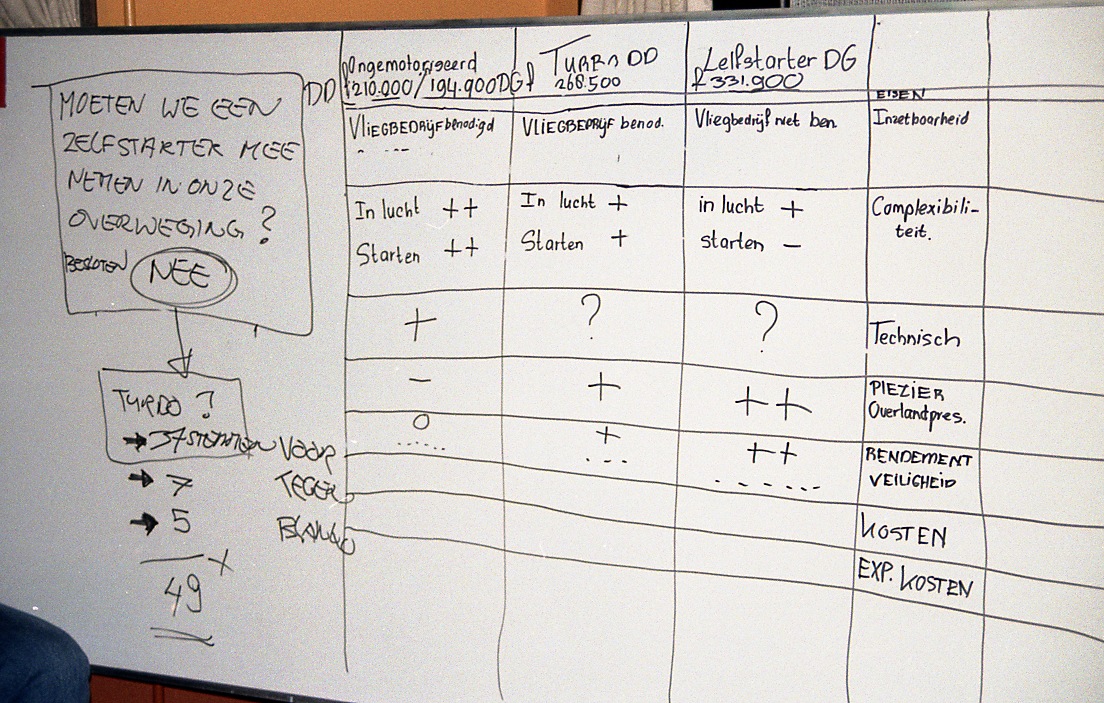 MOETEN WE EEN
ZELFSTARTER MEE
NEMEN IN ONZE
OVERWEGING?
BESLOTEN NEE
TURBO?
→ 37 STEMMEN VOOR
→ 7 TEGEN
→ 5 BLANCO
+
49
Ongemotoriseerd
DD ƒ210.000/194.900 DG
TURBO DD
ƒ 268.500
Zelfstarter DG
ƒ 331.900
EISEN
VLIEGBEDRIJF benodigd
VLIEGBEDRIJF benod.
Vliegbedrijf niet ben.
Inzetbaarheid
In lucht ++
Starten ++
In lucht +
Starten +
in lucht +
starten -
Complexibili-
teit.
+
?
?
Technisch
-
+
++
PLEZIER
Overlandpres.
O
+
++
RENDEMENT
VEILIGHEID
KOSTEN
EXP. KOSTEN